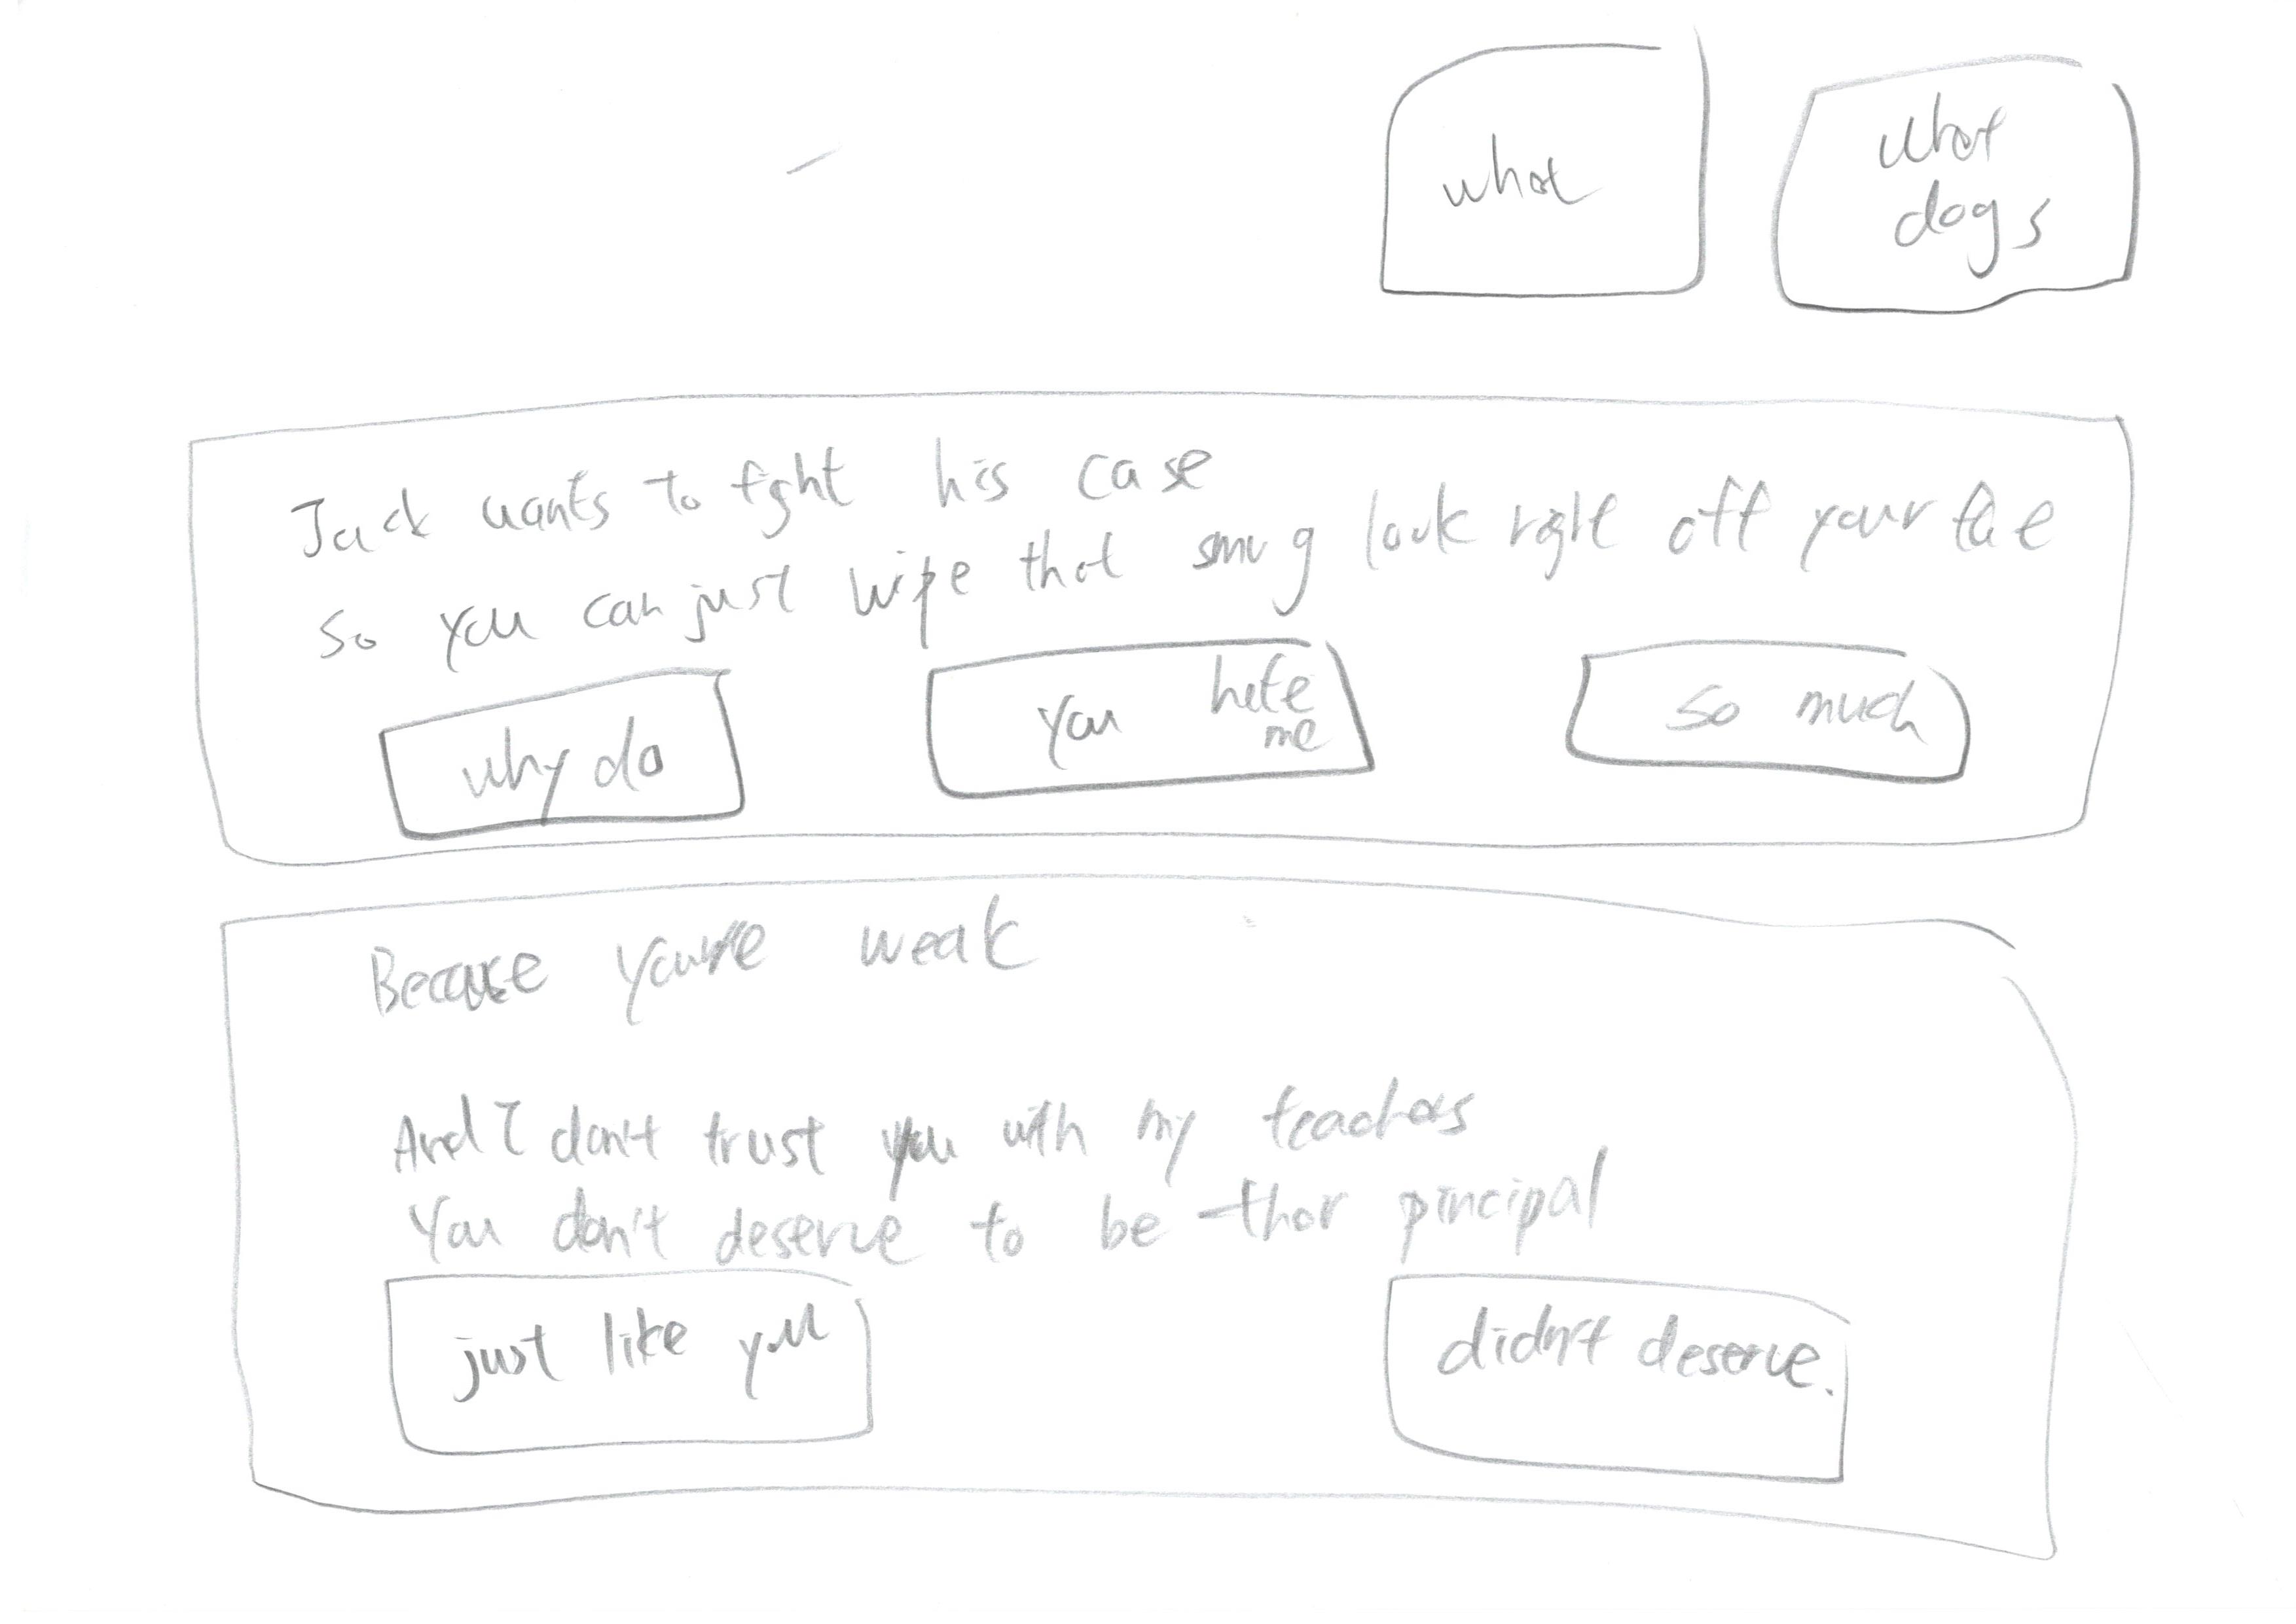 what
what
dogs
Jack wants to fight his case
so you can just wipe that smug look right off your face
why do
you hate
me
so much
Because you're weak
And I don't trust you with my teachers
You don't deserve to be their pincipal
just like you
didn't deserve.